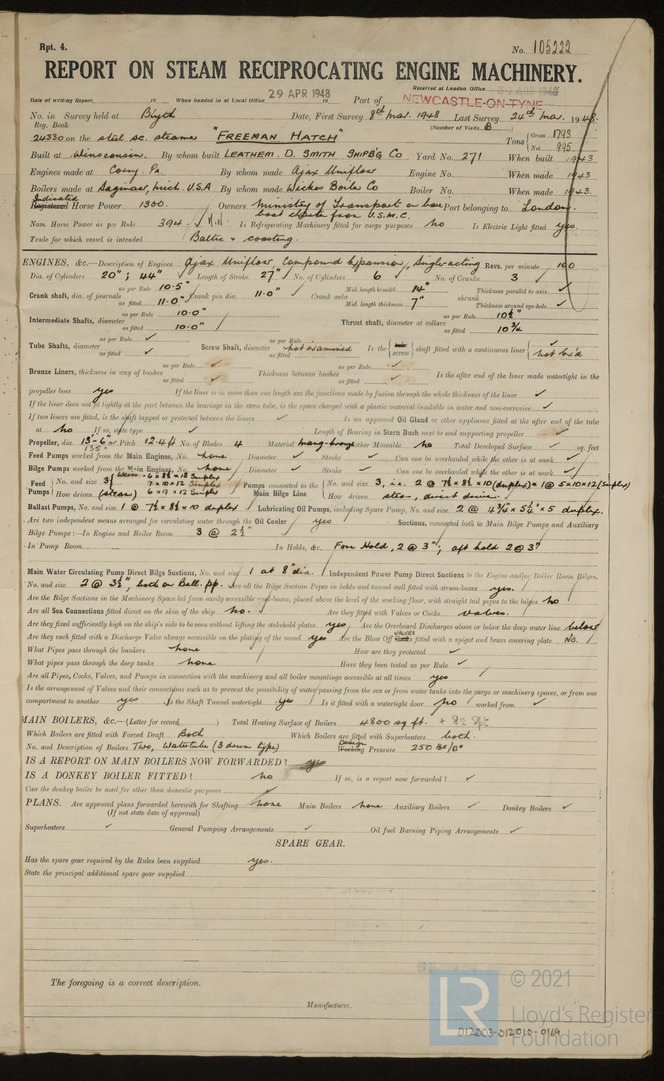 Rpt. 4. No. 105222
REPORT ON STEAM RECIPROCATING ENGINE MACHINERY.
Received at London Office
Date of writing Report 19 When handed in at Local Office 29 APR 1948 19 Port of NEWCASTLE-ON-TYNE
No. in Survey held at Blyth Date, First Survey 8th Mar. 1948 Last Survey 24th Mar. 1948
Reg. Book (Number of Visits 6)
24330 on the steel sc. steamer "FREEMAN HATCH" Tons Gross 1793 Net 995
Built at Winsconsin. By whom built LEATHEM. D. SMITH SHIPB'G Co Yard No. 271 When built 1943
Engines made at Corry Pa. By whom made Ajax Uniflow Engine No. When made 1943
Boilers made at Saginaw, Mich. U.S.A By whom made Wickes Boiler Co Boiler No. When made 1943.
Indicated
Registered Horse Power 1300. Owners Ministry of Transport on bare Port belonging to London.
boat charter from U.S.M.C.
Nom. Horse Power as per Rule 394. Is Refrigerating Machinery fitted for cargo purposes no Is Electric Light fitted yes.
Trade for which vessel is intended Baltic & coasting.
ENGINES, &c.—Description of Engines Ajax Uniflow, Compound Expansion, Single acting Revs. per minute 160
Dia. of Cylinders 20"; 44" Length of Stroke 27" No. of Cylinders 6 No. of Cranks 3
Crank shaft, dia. of journals as per Rule 10.5" as fitted 11.0" Crank pin dia. 11.0" Crank webs Mid. length breadth 14" Mid. length thickness 7" shrunk Thickness parallel to axis ✓ Thickness around eye-hole ✓
Intermediate Shafts, diameter as per Rule 10.0" as fitted 10.0" Thrust shaft, diameter at collars as per Rule 10½" as fitted 10¾
Tube Shafts, diameter as per Rule ✓ as fitted ✓ Screw Shaft, diameter as per Rule as fitted not examined Is the screw shaft fitted with a continuous liner
Bronze Liners, thickness in way of bushes as per Rule ✓ as fitted ✓ Thickness between bushes as per Rule ✓ as fitted ✓ Is the after end of the liner made watertight in the
propeller boss yes If the liner is in more than one length are the junctions made by fusion through the whole thickness of the liner ✓
If the liner does not fit tightly at the part between the bearings in the stern tube, is the space charged with a plastic material insoluble in water and non-corrosive ✓
If two liners are fitted, is the shaft lapped or protected between the liners ✓ Is an approved Oil Gland or other appliance fitted at the after end of the tube
no If so, state type ✓ Length of Bearing in Stern Bush next to and supporting propeller ✓
Propeller, dia. 13'-6" Pitch 12.4 ft No. of Blades 4 Material mang. bronze whether Moveable No Total Developed Surface ✓ sq. feet
Feed Pumps worked from the Main Engines, No. none Diameter ✓ Stroke ✓ Can one be overhauled while the other is at work ✓
Bilge Pumps worked from the Main Engines, No. none Diameter ✓ Stroke ✓ Can one be overhauled while the other is at work ✓
Feed Pumps No. and size 3 7 × 10 × 12 Simplex 6 × 9 × 12 Simplex How driven (steam) Pumps connected to the Main Bilge Line No. and size 3, i.e. 2 @ 7½ × 8½ × 10 (duplex) & 1 @ 5 × 10 × 12 (Simplex) How driven steam, direct drive.
Ballast Pumps, No. and size 1 @ 7½ × 8½ × 10 duplex Lubricating Oil Pumps, including Spare Pump, No. and size 2 @ 4½ × 5¼" × 5 duplex.
Are two independent means arranged for circulating water through the Oil Cooler yes Suctions, connected both to Main Bilge Pumps and Auxiliary
Bilge Pumps:—In Engine and Boiler Room 3 @ 2½"
In Pump Room In Holds, &c. Fore Hold, 2 @ 3"; aft hold 2 @ 3"
Main Water Circulating Pump Direct Bilge Suctions, No. and size 1 at 8" dia. Independent Power Pump Direct Suctions to the Engine and/or Boiler Room Bilges,
No. and size 2 @ 3½", both on Ball. pp. Are all the Bilge Suction Pipes in holds and tunnel well fitted with strum-boxes yes.
Are the Bilge Suctions in the Machinery Space led from easily accessible mud-boxes, placed above the level of the working floor, with straight tail pipes to the bilges no
Are all Sea Connections fitted direct on the skin of the ship no. Are they fitted with Valves or Cocks valves.
Are they fixed sufficiently high on the ship's side to be seen without lifting the stokehold plates yes Are the Overboard Discharges above or below the deep water line below
Are they each fitted with a Discharge Valve always accessible on the plating of the vessel yes Are the Blow Off VALVES fitted with a spigot and brass covering plate No.
What Pipes pass through the bunkers none How are they protected ✓
What pipes pass through the deep tanks none Have they been tested as per Rule ✓
Are all Pipes, Cocks, Valves, and Pumps in connection with the machinery and all boiler mountings accessible at all times yes
Is the arrangement of Valves and their connections such as to prevent the possibility of water passing from the sea or from water tanks into the cargo or machinery spaces, or from one
compartment to another yes Is the Shaft Tunnel watertight yes Is it fitted with a watertight door no worked from ✓
MAIN BOILERS, &c.—(Letter for record ) Total Heating Surface of Boilers 4800 sq ft.
Which Boilers are fitted with Forced Draft Both Which Boilers are fitted with Superheaters both.
No. and Description of Boilers Two, Watertube (3 drum type) Design Working Pressure 250 lbs/□"
IS A REPORT ON MAIN BOILERS NOW FORWARDED? yes
IS A DONKEY BOILER FITTED? no If so, is a report now forwarded? ✓
Can the donkey boiler be used for other than domestic purposes ✓
PLANS. Are approved plans forwarded herewith for Shafting none Main Boilers none Auxiliary Boilers ✓ Donkey Boilers ✓
(If not state date of approval)
Superheaters ✓ General Pumping Arrangements ✓ Oil fuel Burning Piping Arrangements ✓
SPARE GEAR.
Has the spare gear required by the Rules been supplied yes.
State the principal additional spare gear supplied
The foregoing is a correct description.
Manufacturer.
LR © 2021
Lloyd's Register
Foundation
012003-012010-0169